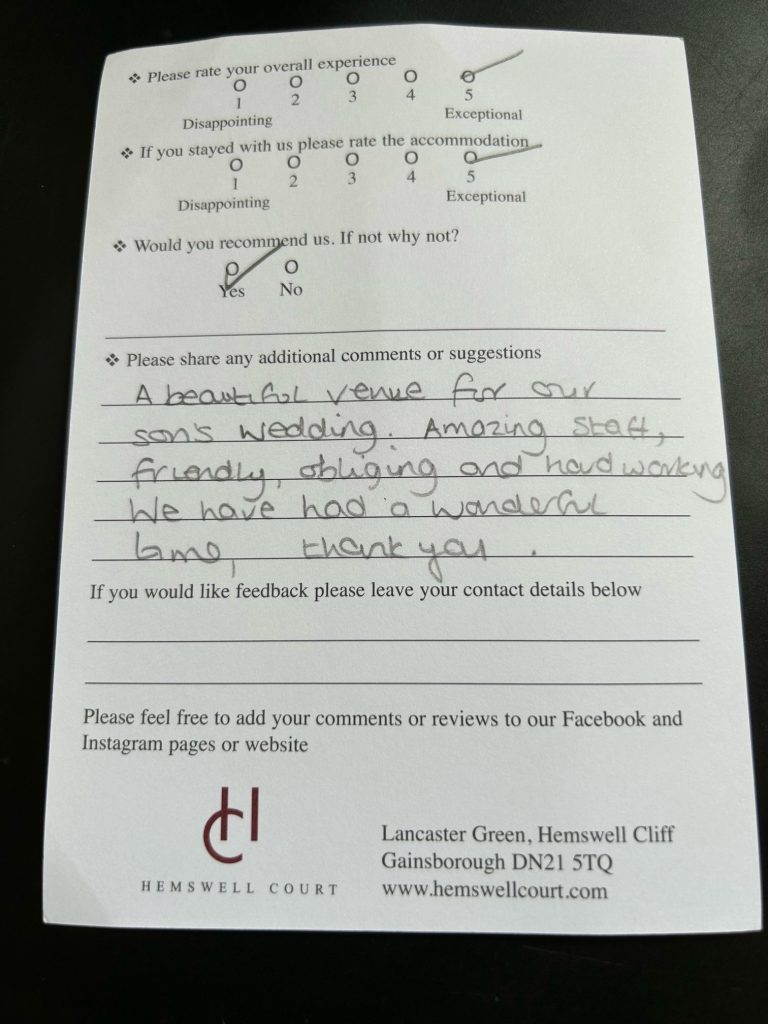 ❖ Please rate your overall experience
O O O O O
1 2 3 4 5
Disappointing Exceptional
❖ If you stayed with us please rate the accommodation
O O O O O
1 2 3 4 5
Disappointing Exceptional
❖ Would you recommend us. If not why not?
O O
Yes No
❖ Please share any additional comments or suggestions
A beautiful venue for our
son's wedding. Amazing staff,
friendly, obliging and hardworking
We have had a wonderful
time, thank you .
If you would like feedback please leave your contact details below
Please feel free to add your comments or reviews to our Facebook and
Instagram pages or website
HC
HEMSWELL COURT
Lancaster Green, Hemswell Cliff
Gainsborough DN21 5TQ
www.hemswellcourt.com